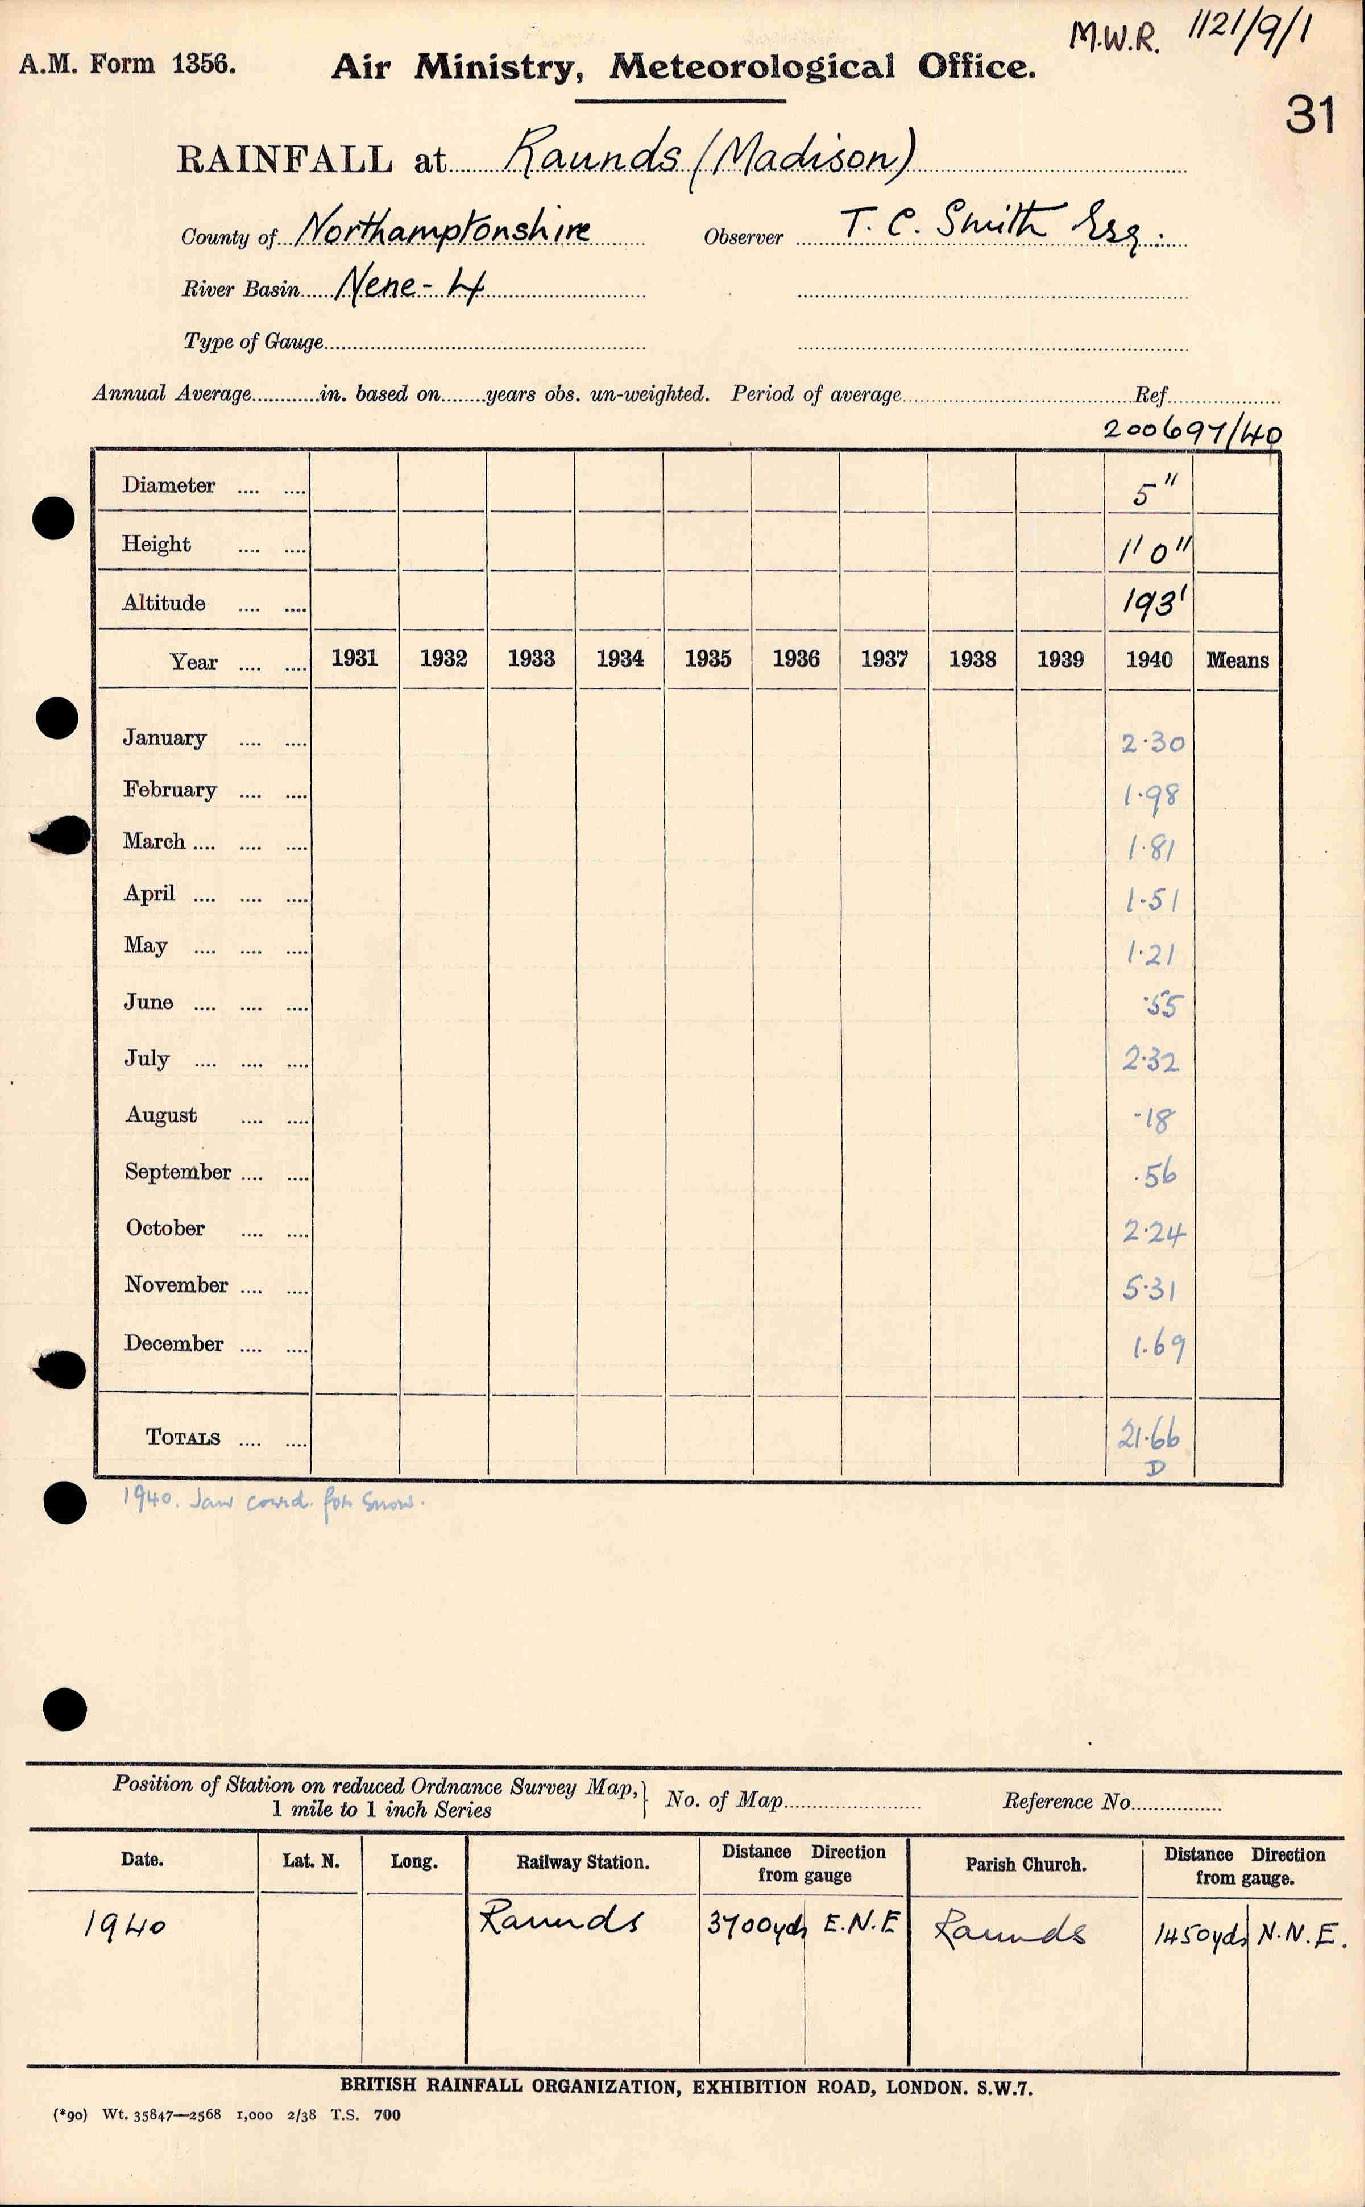 M.W.R. 1121/9/1
A.M. Form 1356. Air Ministry, Meteorological Office.
31
RAINFALL at Raunds (Madison)
County of Northamptonshire Observer T. C. Smith Esq.
River Basin Nene - 4
Type of Gauge
Annual Average in. based on years obs. un-weighted. Period of average Ref
200697/40
Diameter 5"
Height 1'0"
Altitude 193'
Year 1931 1932 1933 1934 1935 1936 1937 1938 1939 1940 Means
January 2.30
February 1.98
March 1.81
April 1.51
May 1.21
June .55
July 2.32
August .18
September .56
October 2.24
November 5.31
December 1.69
TOTALS 21.66
D
1940. Jan for Snow.
Position of Station on reduced Ordnance Survey Map, No. of Map Reference No.
1 mile to 1 inch Series
Date. Lat. N. Long. Railway Station. Distance Direction from gauge Parish Church. Distance Direction from gauge.
1940 Raunds 3700yds E.N.E Raunds 1450yds N.N.E.
BRITISH RAINFALL ORGANIZATION, EXHIBITION ROAD, LONDON. S.W.7.
(*90) Wt. 35847—2568 1,000 2/38 T.S. 700